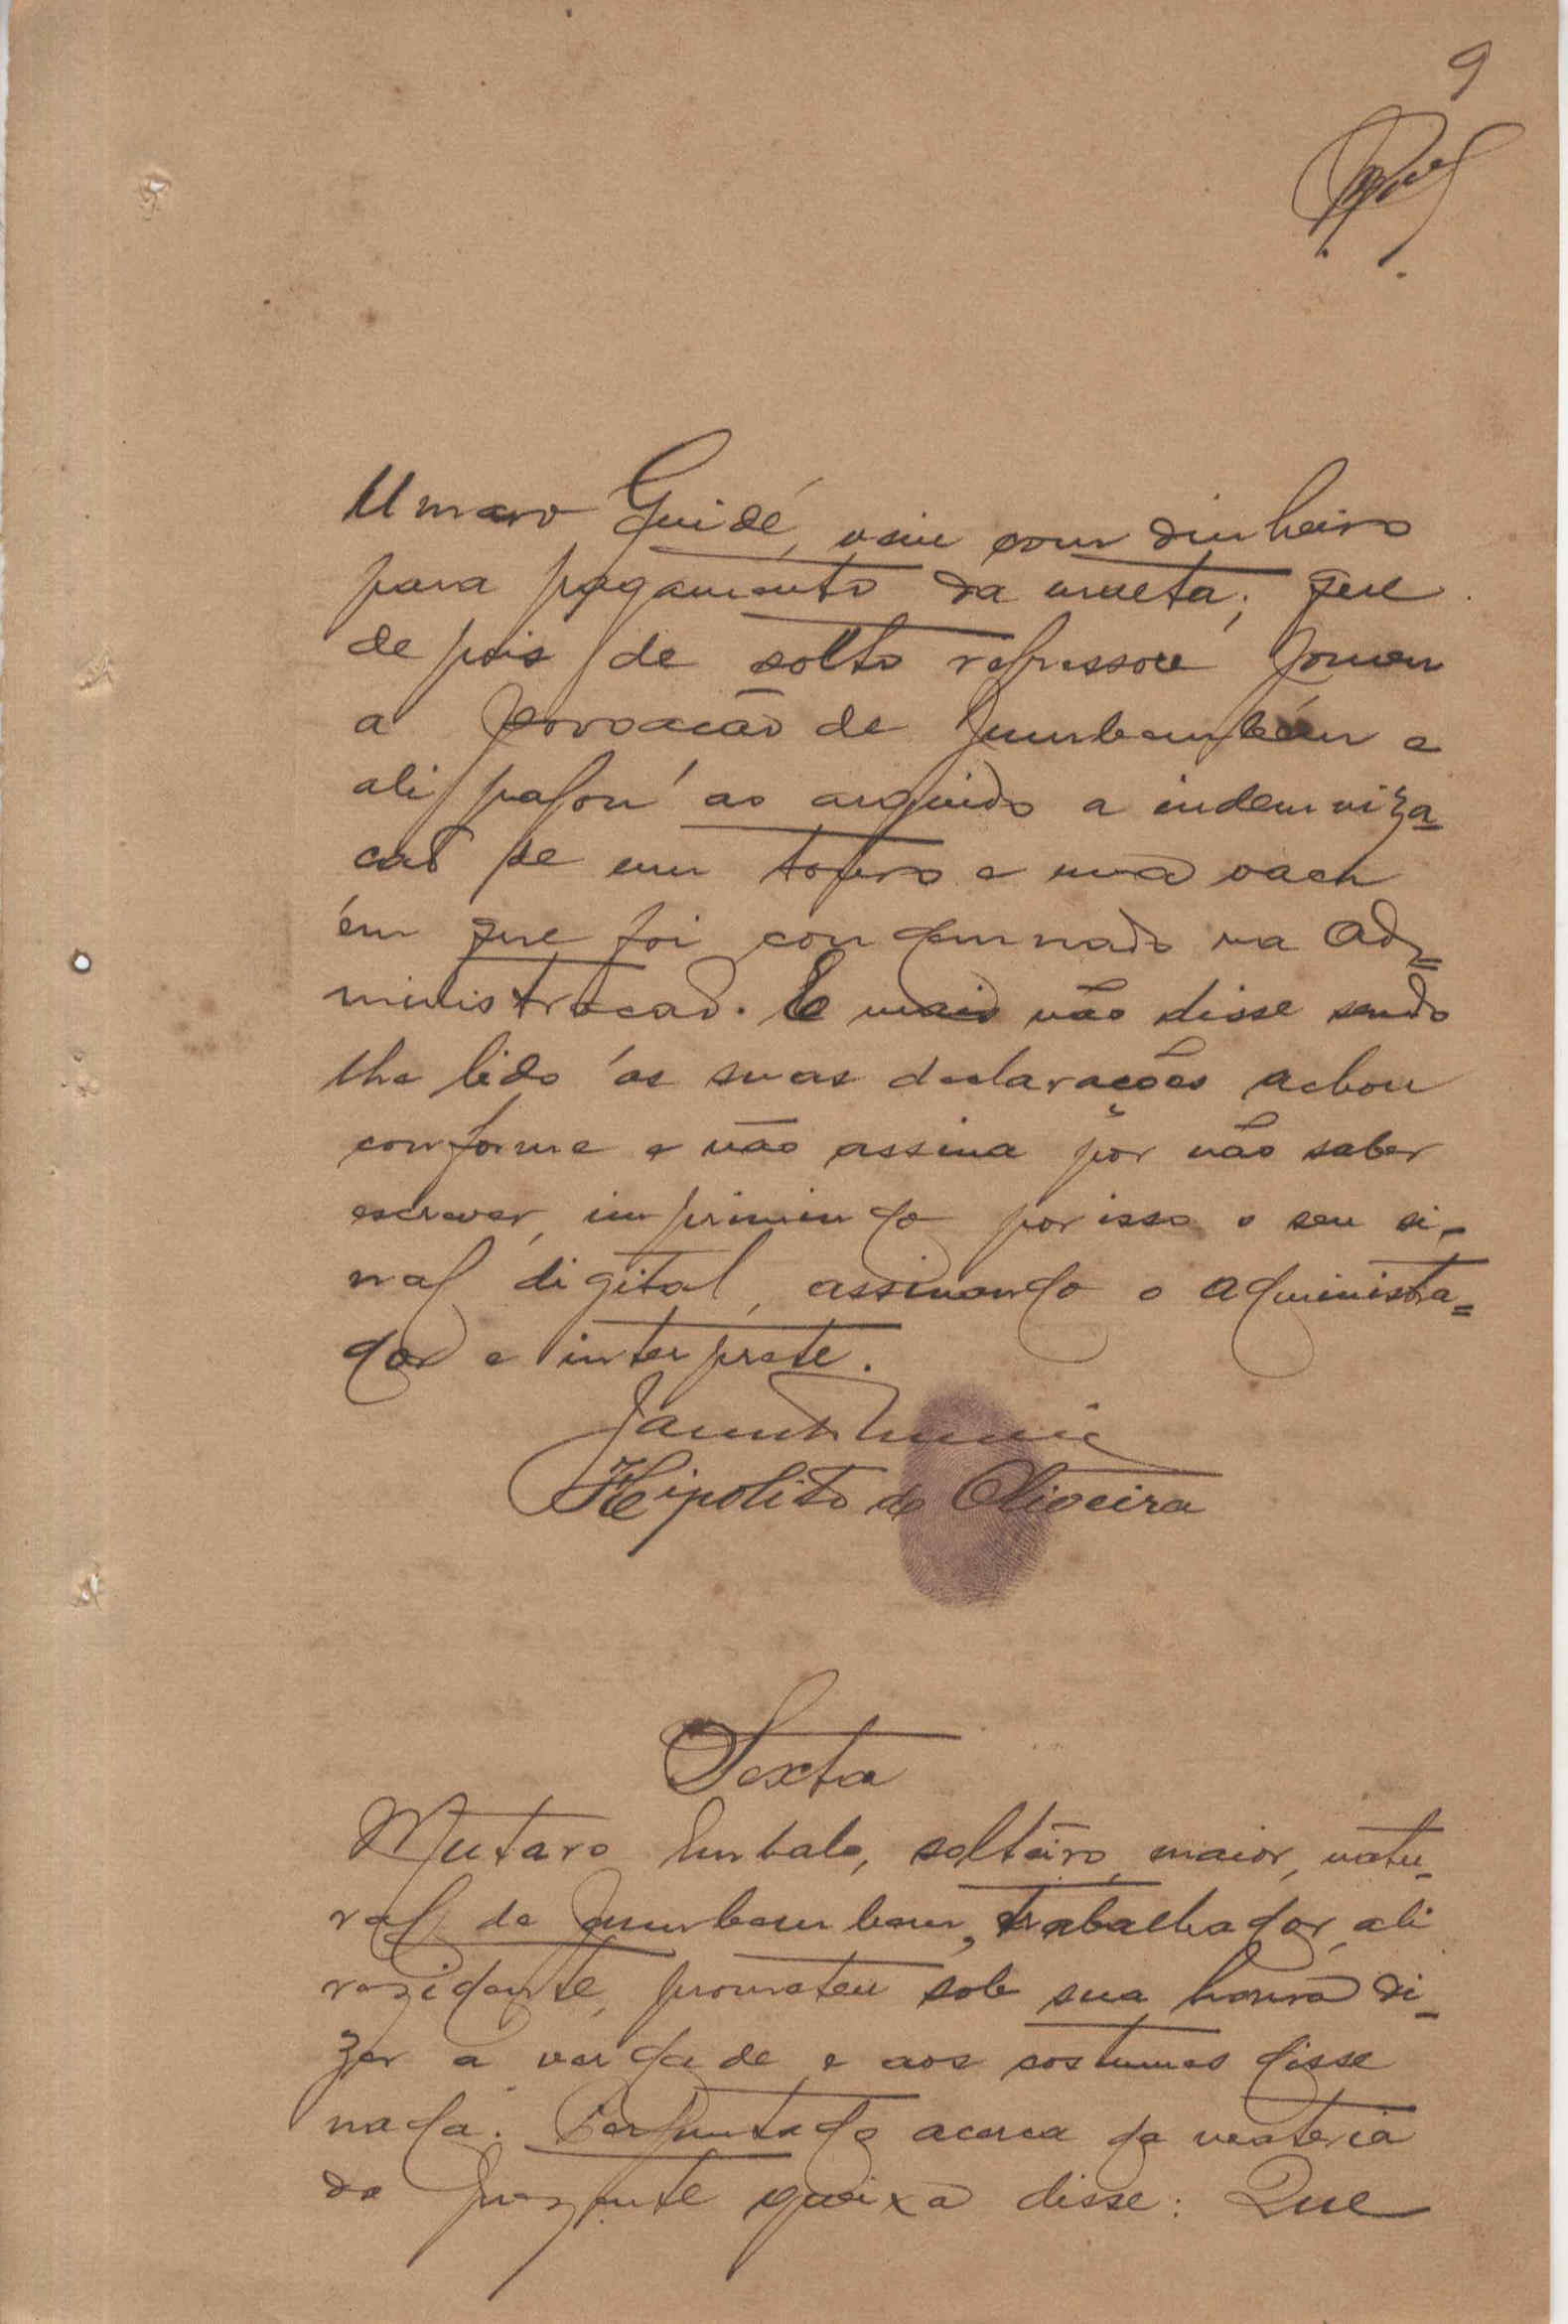 9
Umaro Guidé, veiu com dinheiro
para pagamento da multa; que
depois de solto regressou
a povoação de Jumbembém e
ali pagou ao arguido a indemniza-
cão de um touro e uma vaca
em que foi condemnado na Ad-
ministracão. E mais não disse sendo
lhe lido as suas declarações achou
conforme e não assina por não saber
escrever, imprimindo por isso o seu si-
nal digital, assinando o administra-
dor e interprete.
Hipolito de Oliveira
Sexta
Mutaro Embalo, solteiro, maior, natu-
ral de Jumbembem, trabalhador, ali
rezidente, prometeu sob sua honra di-
zer a verdade e aos costumes disse
nada. Perguntado acerca da materia
da prezente queixa disse: Que